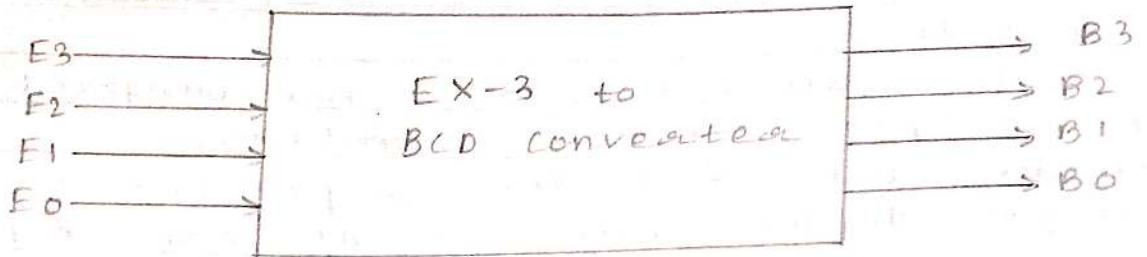 E3
E2
E1
E0
EX-3 to
BCD converter
B3
B2
B1
B0